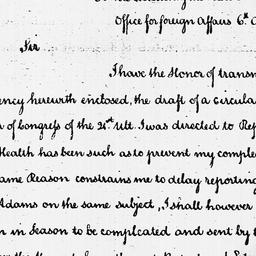 Office for foreign Affairs 6th
Sir
I have the Honor of transm
ency herewith enclosed, the draft of a circula
r of Congress of the 21st Ult. I was directed to Rep
Health has been such as to prevent my comple
ame Reason constrains me to delay reporting
Adams on the same subject, I shall however
n in Season to be complicated and sent by t